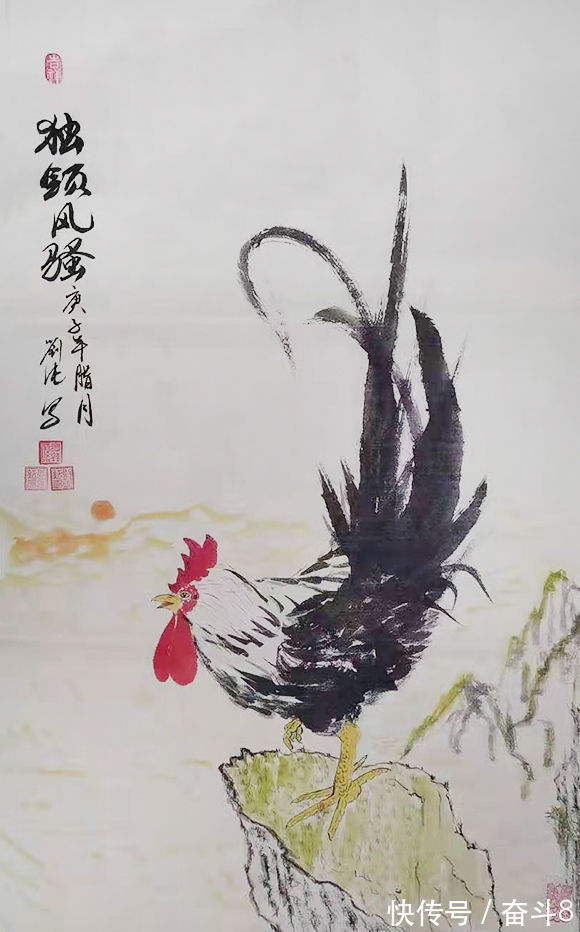 独领风骚
庚子年腊月
劉 写
快传号 / 奋斗8